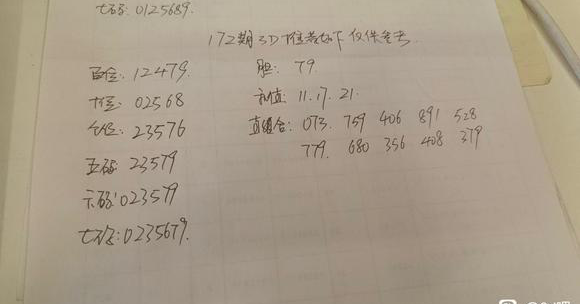 七码: 0125689.
172期3D下位参考如下仅供参考
百位: 12479.
十位: 02568
个位: 23576
五码: 23579
六码: 023579
七码: 0235679.
胆: 79.
和值: 11.17.21.
直组合: 073. 759 406 891 528
779. 680 356 408 379